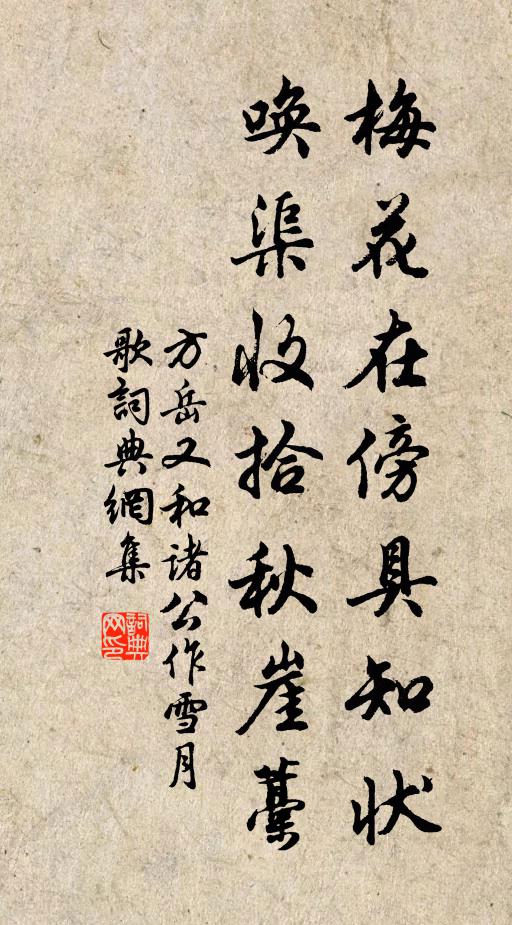 梅花在傍具知状
唤渠收拾秋崖藳
方岳又和诸公作雪月
歌詞典網集
詞典
网印